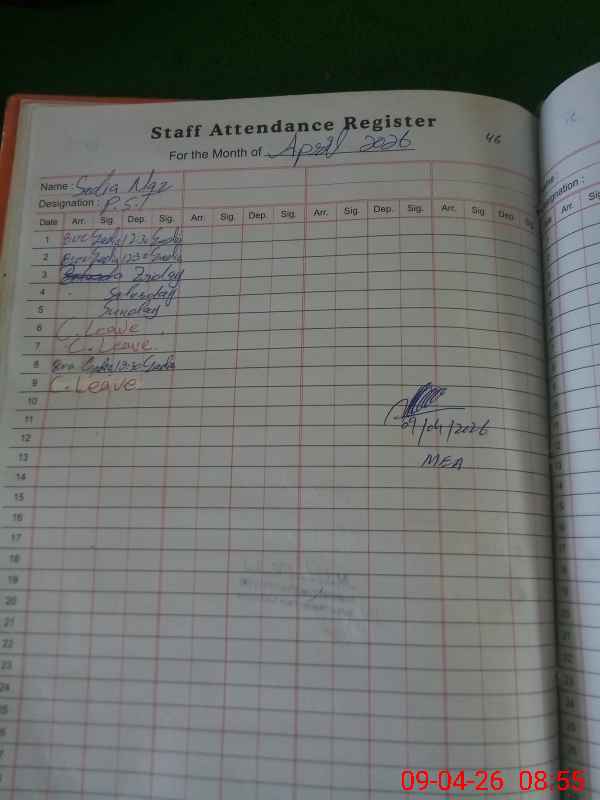 Staff Attendance Register
For the Month of April 2026
46
Name : Sadia Naz
Designation : P.S.T
Date Arr. Sig. Dep. Sig. Arr. Sig. Dep. Sig. Arr. Sig. Dep. Sig. Arr. Sig. Dep. Sig.
1 8:00 Sadia 12:30 Sadia
2 8:00 Sadia 12:30 Sadia
3 Friday
4 Saturday
5 Sunday
6 C. Leave
7 C. Leave
8 8:00 Sadia 12:30 Sadia
9 C. Leave
10
11
09/04/2026
12
13
MEA
14
15
16
17
18
19
20
21
22
23
24
09-04-26 08:55